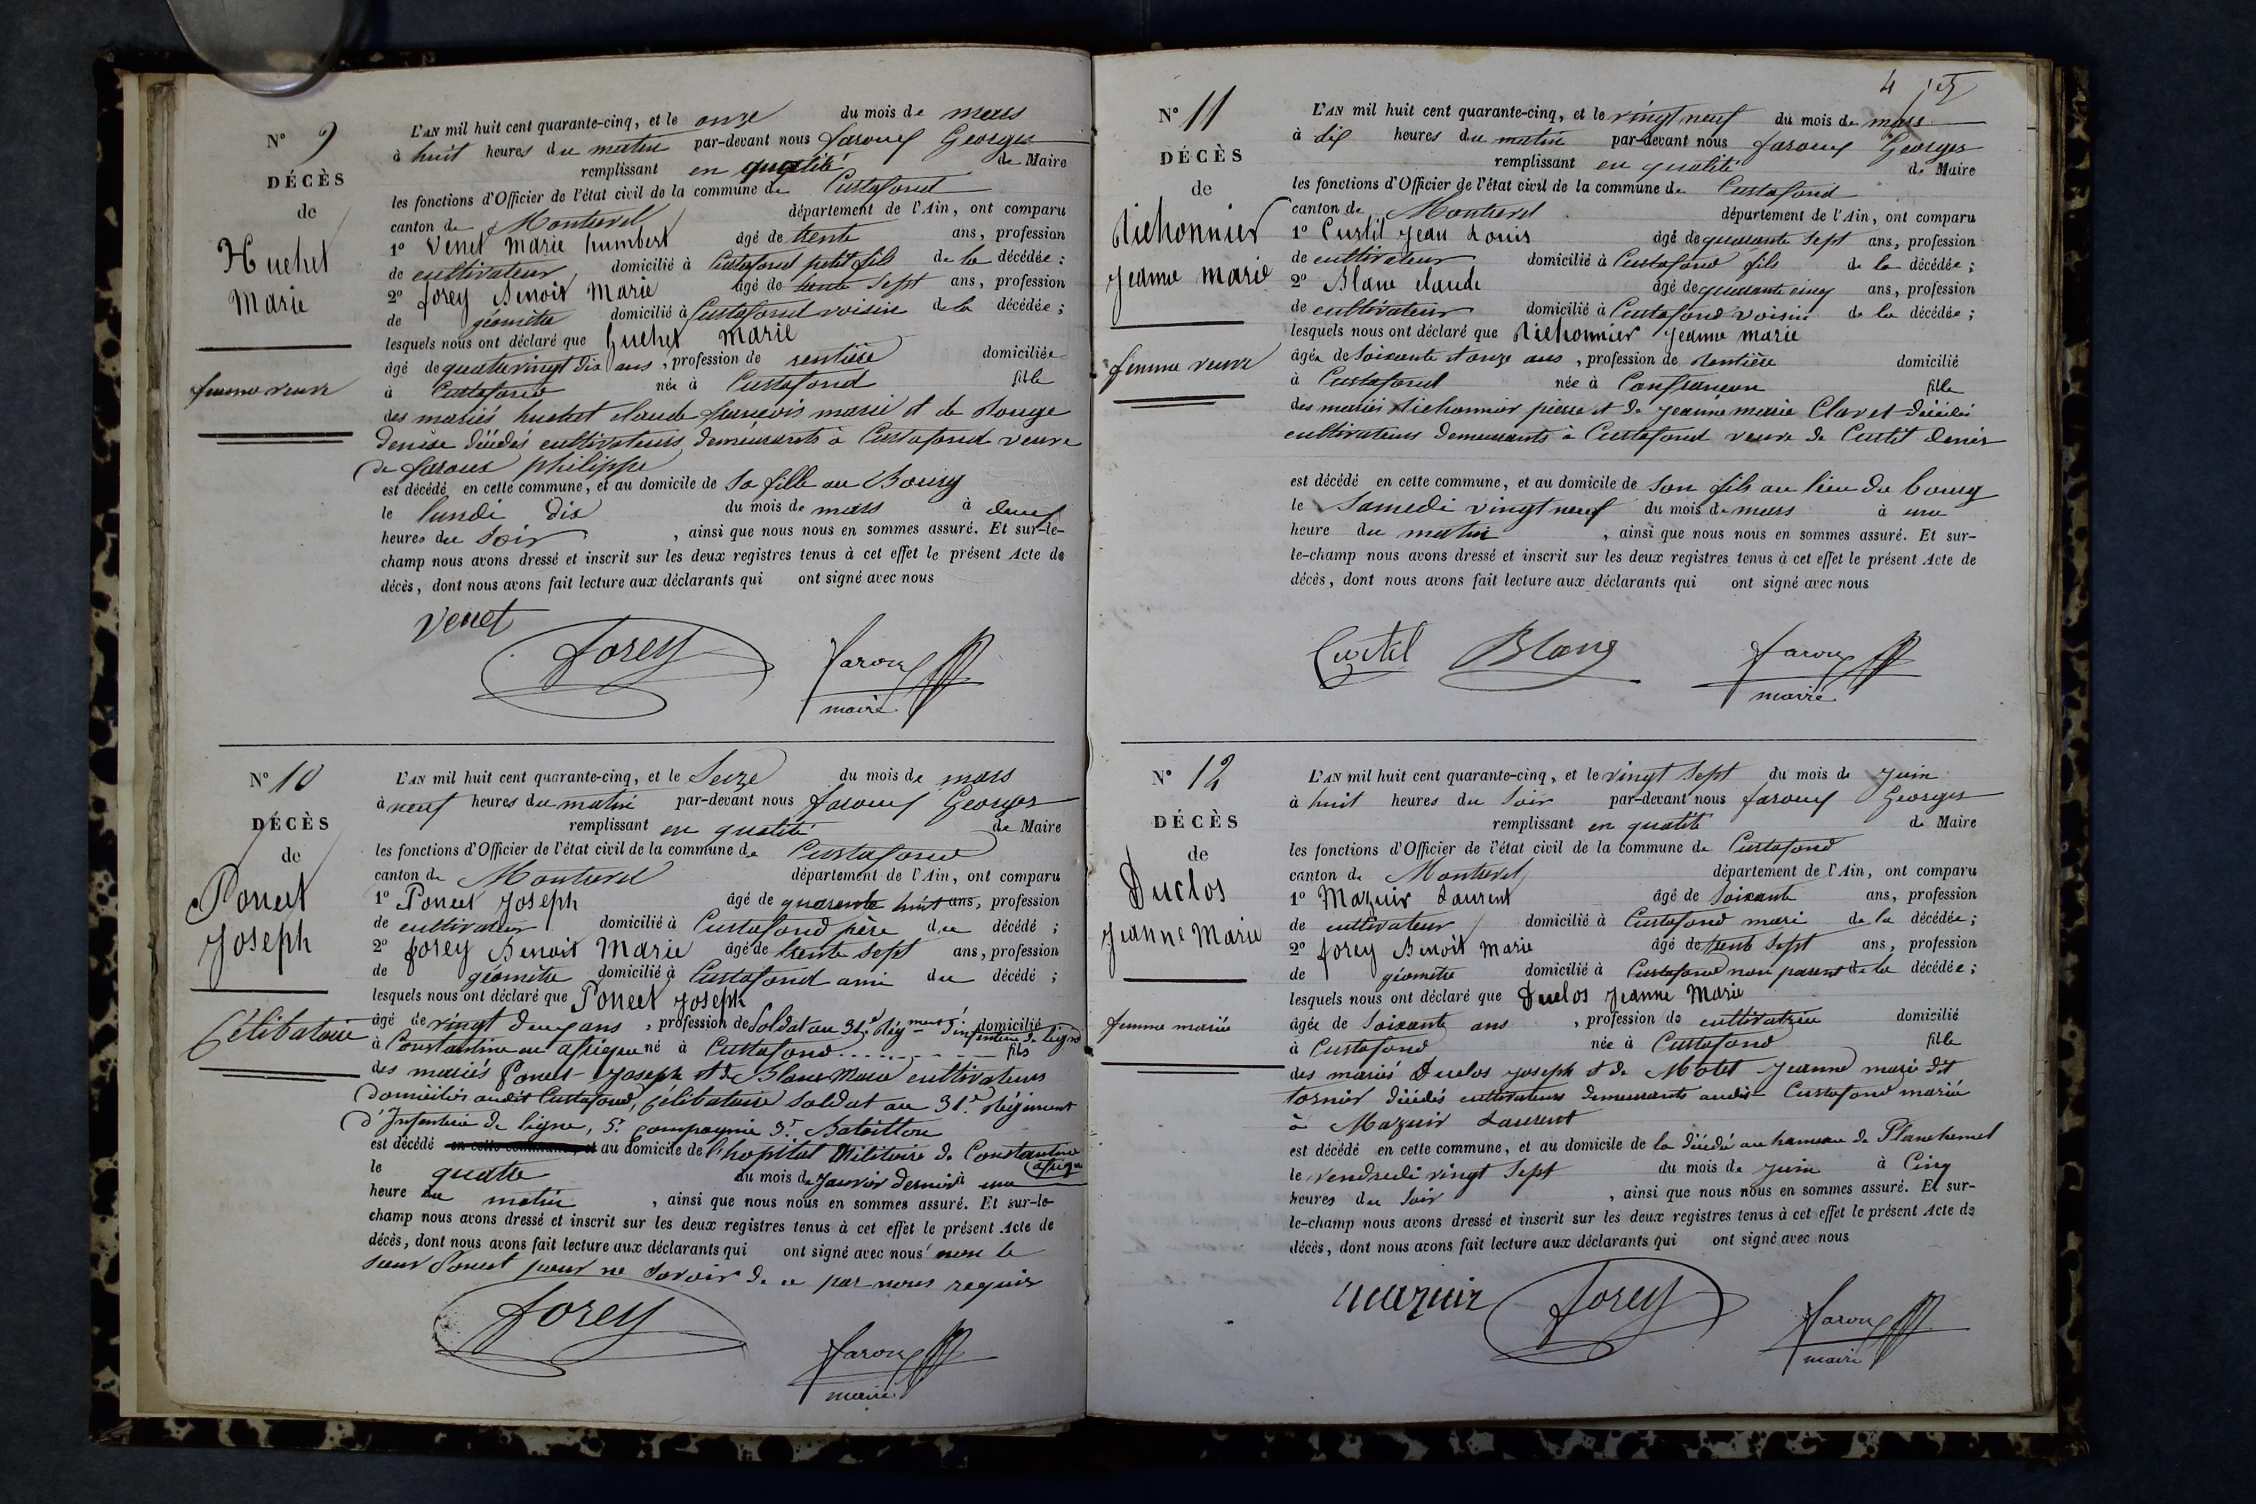 N° 9
DÉCÈS
de
Huchet
Marie
femme veuve
L'AN mil huit cent quarante-cinq, et le onze du mois de mars
à huit heures du matin par-devant nous faroux Georges
remplissant en qualité de Maire
les fonctions d'Officier de l'état civil de la commune de Curtafond
canton de Montrevel département de l'Ain, ont comparu
1° Venet Marie humbert âgé de trente ans, profession
de cultivateur, domicilié à Curtafond petit fils de la décédée;
2° forey Benoit Marie âgé de trente sept ans, profession
de géomètre domicilié à Curtafond voisin de la décédée;
lesquels nous ont déclaré que huchet Marie
âgé de quatrevingt dix ans, profession de rentière domiciliée
à Curtafond née à Curtafond fille
des mariés huchet claude françois marie et de Rouge
Denise décédés cultivateurs demeurants à Curtafond veuve
de faroux philippe
est décédé en cette commune, et au domicile de sa fille au Bourg
le lundi dix du mois de mars à deux
heures du soir, ainsi que nous nous en sommes assuré. Et sur-le-
champ nous avons dressé et inscrit sur les deux registres tenus à cet effet le présent Acte de
décès, dont nous avons fait lecture aux déclarants qui ont signé avec nous
Venet
forey
faroux
maire
N° 10
DÉCÈS
de
Poncet
Joseph
Célibataire
L'AN mil huit cent quarante-cinq, et le Seize du mois de mars
à neuf heures du matin par-devant nous faroux Georges
remplissant en qualité de Maire
les fonctions d'Officier de l'état civil de la commune de Curtafond
canton de Montrevel département de l'Ain, ont comparu
1° Poncet Joseph âgé de quarante huit ans, profession
de cultivateur domicilié à Curtafond père du décédé;
2° forey Benoit Marie âgé de trente sept ans, profession
de géomètre domicilié à Curtafond ami du décédé;
lesquels nous ont déclaré que Poncet Joseph
âgé de vingt deux ans, profession de Soldat au 31e Régment d'infanterie de ligne domicilié
à Constantine en afrique né à Curtafond fils
des mariés Poncet Joseph et de Blanc Marie cultivateurs
domiciliés audit Curtafond, Célibataire Soldat au 31e Régiment
d'Infanterie de ligne, 5e compagnie 3e Bataillon
est décédé en cette commune, et au domicile de l'hopital Militaire de Constantine
(afrique
le quatre du mois de Janvier dernier à une
heure du matin, ainsi que nous nous en sommes assuré. Et sur-le-
champ nous avons dressé et inscrit sur les deux registres tenus à cet effet le présent Acte de
décès, dont nous avons fait lecture aux déclarants qui ont signé avec nous non le
sieur Poncet pour ne savoir de ce par nous requis
forey
faroux
maire
4
N° 11
DÉCÈS
de
Richonnier
Jeanne Marie
femme veuve
L'AN mil huit cent quarante-cinq, et le vingt neuf du mois de mars
à dix heures du matin par-devant nous faroux Georges
remplissant en qualité de Maire
les fonctions d'Officier de l'état civil de la commune de Curtafond
canton de Montrevel département de l'Ain, ont comparu
1° Curtil Jean Louis âgé de quarante sept ans, profession
de cultivateur domicilié à Curtafond fils de la décédée;
2° Blanc claude âgé de quarante cinq ans, profession
de cultivateur domicilié à Curtafond voisin de la décédée;
lesquels nous ont déclaré que Richonnier Jeanne marie
âgée de soixante et onze ans, profession de Rentière domicilié
à Curtafond née à Confrançon fille
des mariés Richonnier pierre et de jeanne marie Claret décédés
cultivateurs demeurants à Curtafond veuve de Curtil denis
est décédé en cette commune, et au domicile de son fils au lieu du bourg
le Samedi vingt neuf du mois de mars à une
heure du matin, ainsi que nous nous en sommes assuré. Et sur-
le-champ nous avons dressé et inscrit sur les deux registres tenus à cet effet le présent Acte de
décès, dont nous avons fait lecture aux déclarants qui ont signé avec nous
Curtil
Blanc
faroux
maire
N° 12
DÉCÈS
de
Duclos
Jeanne Marie
femme mariée
L'AN mil huit cent quarante-cinq, et le vingt sept du mois de Juin
à huit heures du soir par-devant nous faroux Georges
remplissant en qualité de Maire
les fonctions d'Officier de l'état civil de la commune de Curtafond
canton de Montrevel département de l'Ain, ont comparu
1° Mazuir Laurent âgé de soixante ans, profession
de cultivateur domicilié à Curtafond mari de la décédée;
2° forey Benoit Marie âgé de trente sept ans, profession
de géomètre domicilié à Curtafond non parent de la décédée;
lesquels nous ont déclaré que Duclos Jeanne Marie
âgée de Soixante ans, profession de cultivatrice domicilié
à Curtafond née à Curtafond fille
des mariés Duclos Joseph et de Motet Jeanne marie dit
tornier décédés cultivateurs demeurants audit Curtafond mariée
à Mazuir Laurent
est décédé en cette commune, et au domicile de la décédé au hameau de Planchemel
le vendredi vingt sept du mois de Juin à cinq
heures du soir, ainsi que nous nous en sommes assuré. Et sur-
le-champ nous avons dressé et inscrit sur les deux registres tenus à cet effet le présent Acte de
décès, dont nous avons fait lecture aux déclarants qui ont signé avec nous
mazuir
forey
faroux
maire